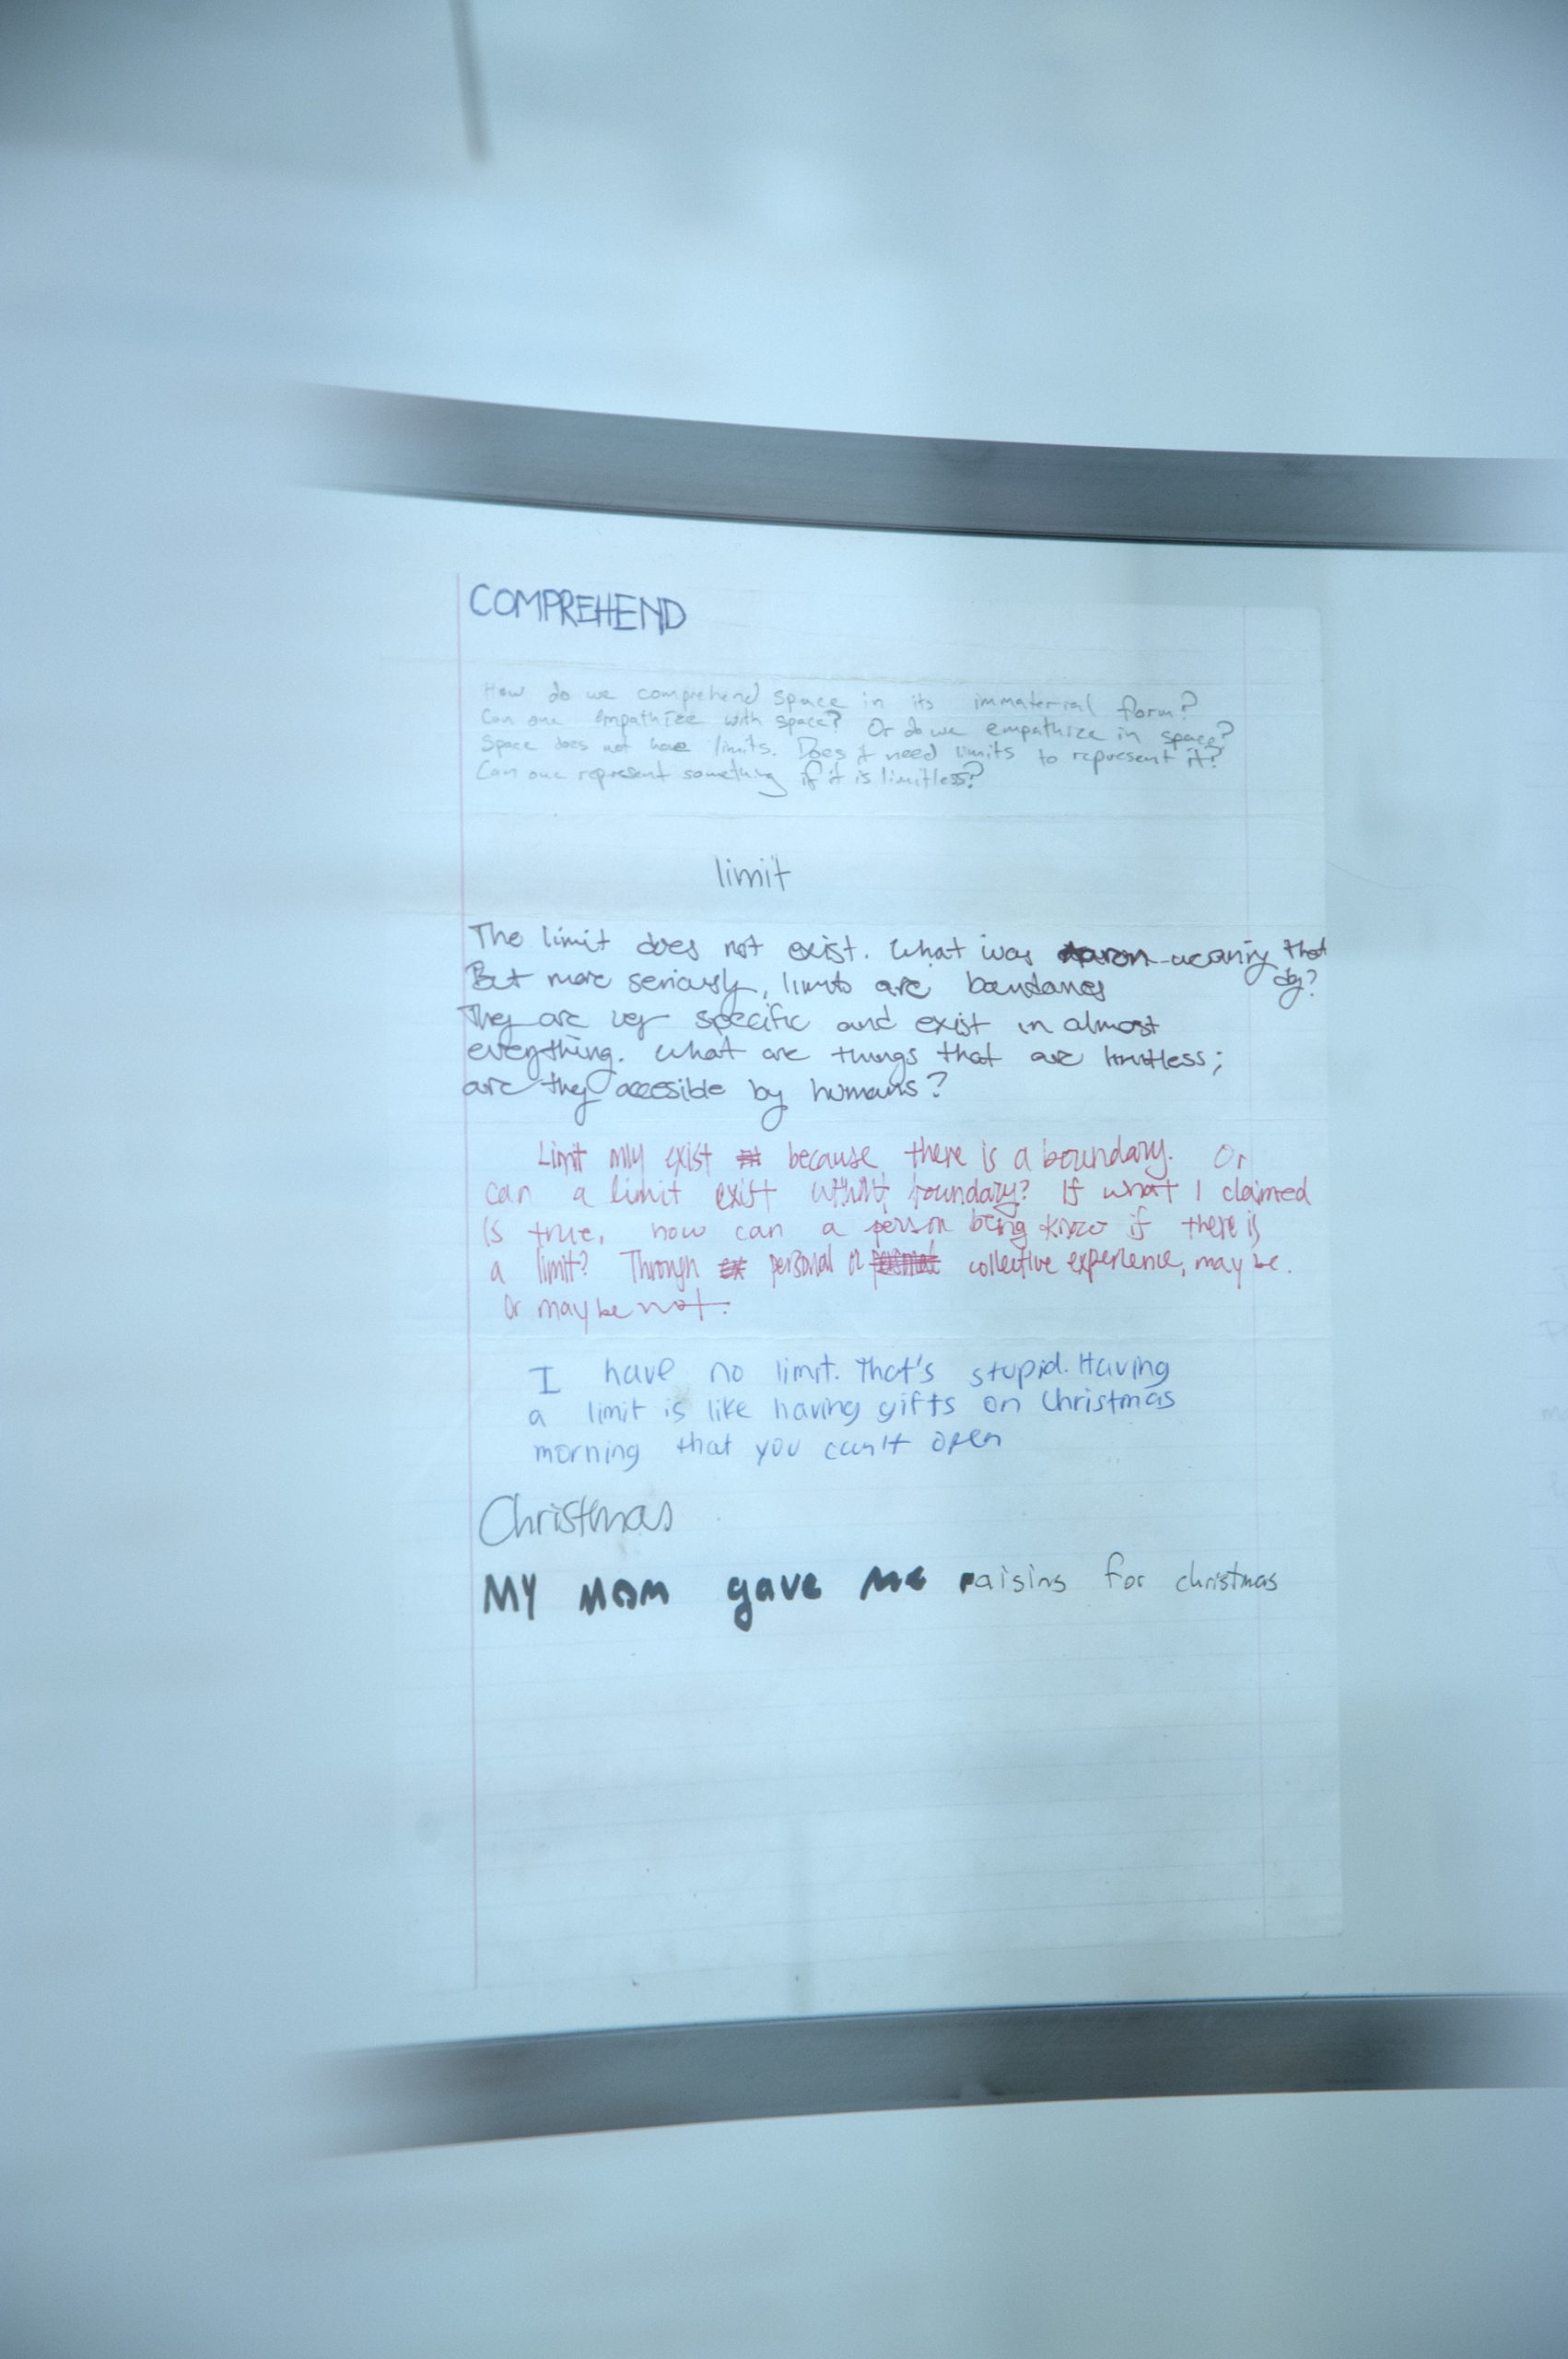 COMPREHEND
How do we comprehend space in its immaterial form?
Can one empathize with space? Or do we empathize in space?
Space does not have limits. Does it need limits to represent it?
Can one represent something if it is limitless?
limit
The limit does not exist. What was wearing that
But more seriously, limits are day?
They are very specific and exist in almost
everything. What are things that are limitless;
are they accesible by humans?
Limit only exist because there is a boundary. Or
can a limit exist without boundary? If what I claimed
is true, how can a person being know if there is
a limit? Through personal or collective experience, may be.
Or may be not.
I have no limit. That's stupid. Having
a limit is like having gifts on Christmas
morning that you can't open
Christmas
MY MOM gave me raisins for christmas